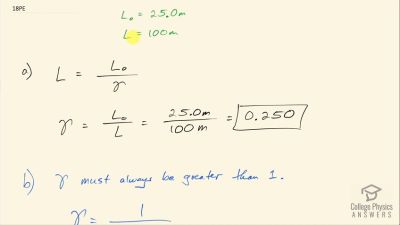 18PE
L₀ = 25.0m
L = 100m
a) L = L₀ / γ
γ = L₀ / L = 25.0m / 100m = 0.250
b) γ must always be greater than 1.
γ = 1
College Physics
ANSWERS